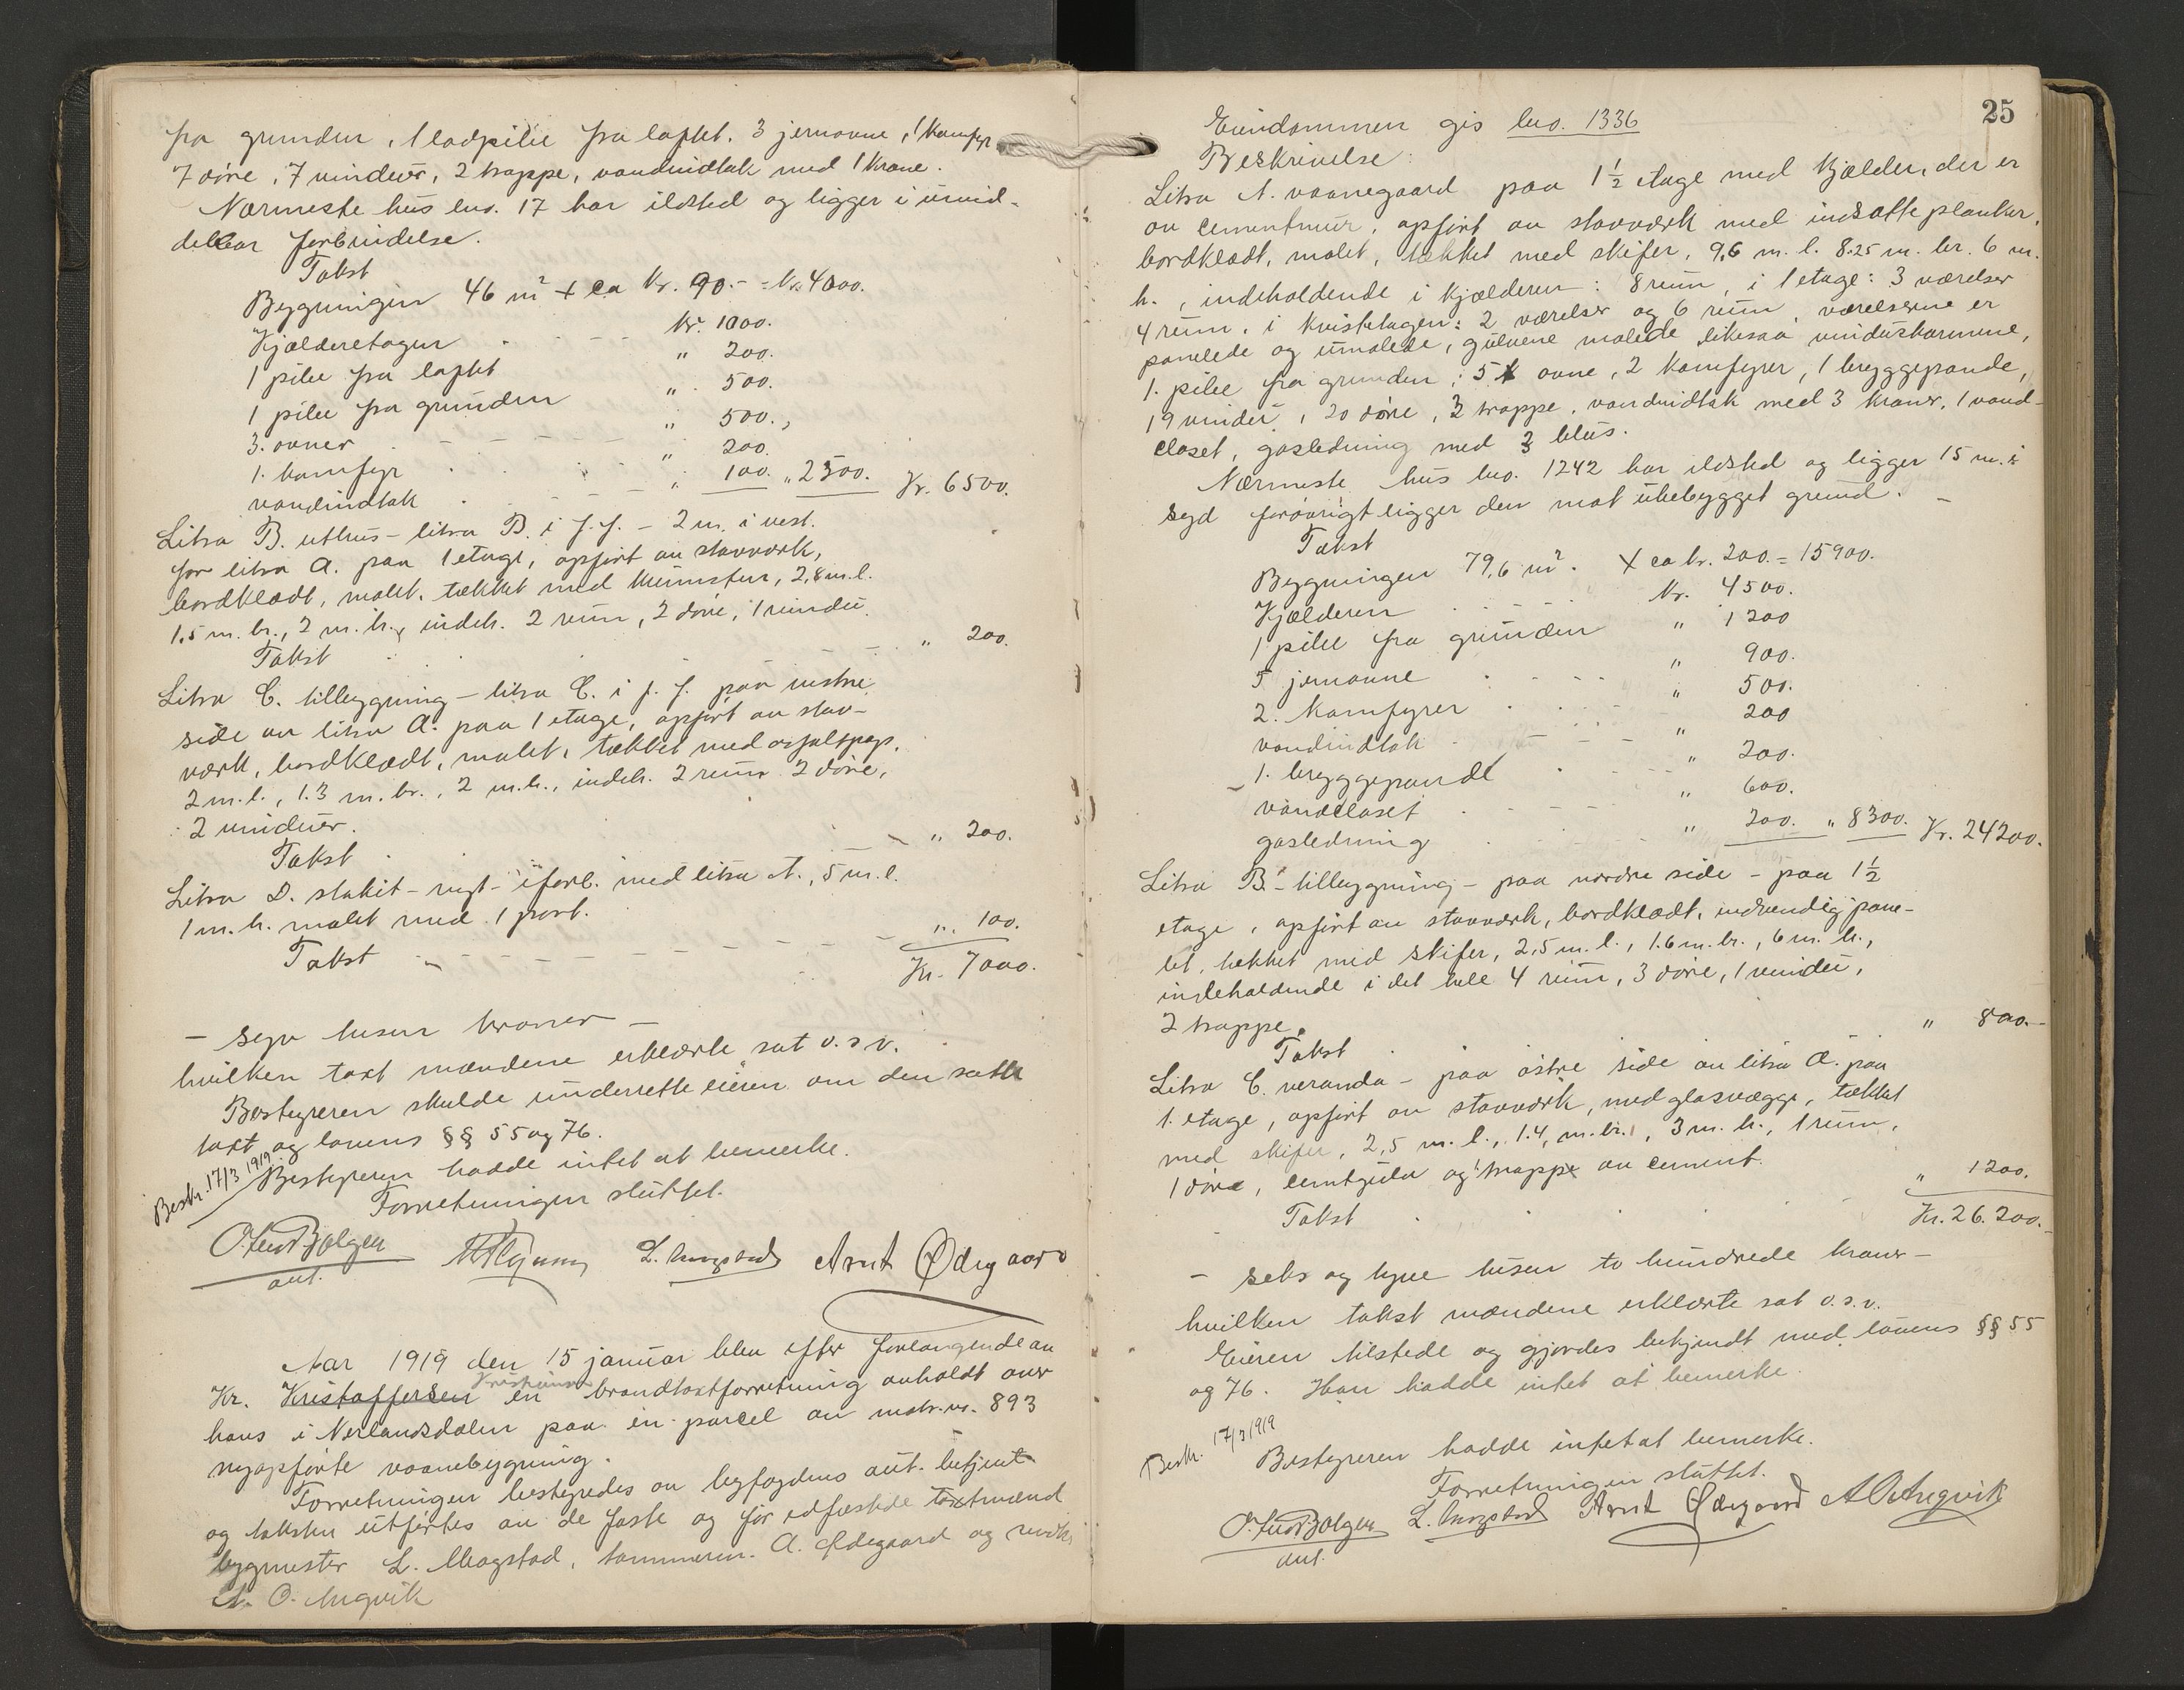 fra grunden, 1 ladpibe fra loftet. 3 jernovne, 1 Komfyr
7 döre, 7 vinduer, 2 trappe, vandindtak med 1 Krane.
Nærmeste hus bno. 17 har ildsted og ligger i umid-
delbar forbindelse.
Takst
Bygningen 46 m² + ca Kr. 90.- = Kr. 4000.
Kjælderetagen Kr. 1000.
1 pibe fra loftet " 200.
1 pibe fra grunden " 500.
3. ovner " 500.,
1. komfyr " 200.
vandindtak " 100. " 2500. Kr. 6500.
Litra B. uthus - litra B. i f.f. - 2 m. i vest.
for litra A. paa 1 etage, opfört av stavverk,
bordklædt, malet. tækket med kunststen, 2,8 m.l.
1,5 m. br., 2 m. h., indeh. 2 rum, 2 döre, 1 vindu.
Takst " 200.
Litra C. tilbygning - litra C. i f. f. paa vestre
side av litra A. paa 1 etage, opfört av stav-
værk, bordklædt, malet, tækket med asfaltpap,
2 m. l., 1.3 m. br., 2 m.h., indeh. 2 rum 2 döre,
2 vinduer.
Takst " 200.
Litra D. stakit - nyt - i forb. med litra A., 5 m. l.
1 m. h. malet med 1 port.
Takst " 100.
Kr. 7000.
- syv tusen kroner -
hvilken taxt mændene erklærte sat o. s. v.
Bestyreren skulde underrette eieren om den satte
taxt og lovens §§ 55 og 76.
Bestr. 17/3 1919
Bestyreren hadde intet at bemerke.
Forretningen sluttet.
L. Magstad Arnt Ødegaard
aut.
Aar 1919 den 15 januar blev efter forlangende av
Kr. Kristoffersen Kristiansen en brandtaxtforretning avholdt over
hans i Nerlandsdalen paa en parcel av matr. no. 893
nyopförte vaanebygning.
Forretningen bestyredes av byfogdens aut. betjent
og taksten utförtes av de faste og för edfæstede taxtmænd
bygmester L. Magstad, tömmerm. A. Ødegaard og
A. O. Angvik
25
Eiendommen gis bno. 1336
Beskrivelse:
Litra A. vaanegaard paa 1½ etage med Kjælder, der er
av cementmur, opfört av stavværk med indsatte planker,
bordklædt, malet, tækket med skifer, 9,6 m. l. 8.25 m. br. 6 m.
h., indeholdende i kjælderen: 8 rum, i 1 etage: 3 værelser
4 rum, i kvistetagen: 2 værelser og 6 rum, værelserne er
panelede og umalede, gulvene malede likesaa vinduskarmene,
1. pibe fra grunden, 5 ovne, 2 Komfyrer, 1 bryggepande,
19 vindu, 20 döre, 2 trappe, vandindtak med 3 Kraner, 1 vand-
closet, gasledning med 3 blus.
Nærmeste hus bno. 1242 har ildsted og ligger 15 m. i
syd forövrigt ligger den mot ubebygget grund. -
Takst
Bygningen 79,6 m². X ca kr. 200. = 15900.
Kjælderen Kr. 4500.
1 pibe fra grunden " 1200
5 jernovne " 900.
2. Komfyrer " 500.
vandindtak " 200
1. bryggepande " 200.
vandclaset " 600.
gasledning " 200. " 8300. Kr. 24200.
Litra B. - tilbygning - paa nordre side - paa 1½
etage, opfört av stavværk, bordklædt, indvendig pane-
let, tækket med skifer, 2,5 m. l., 1.6 m. br., 6 m. h.,
indeholdende i det hele 4 rum, 3 döre, 1 vindu,
2 trappe.
Takst " 800.-
Litra C. veranda - paa östre side av litra A. paa
1. etage, opfört av stavværk, med glasvægge, tækket
med skifer, 2,5 m. l., 1.4, m. br., 3 m. h., 1 rum,
1 dör, cemtgulv og trappe av cement.
Takst " 1200.
Kr. 26.200.-
- seks og tyve tusen to hundrede kroner -
hvilken takst mændene erklærte sat o. s. v.
Eieren tilstede og gjordes bekjendt med lovens §§ 55
og 76. Han hadde intet at bemerke.
Bestr. 17/3 1919
Bestyreren hadde intet at bemerke.
Forretningen sluttet.
L. Magstad Arnt Ødegaard A O Angvik
aut.